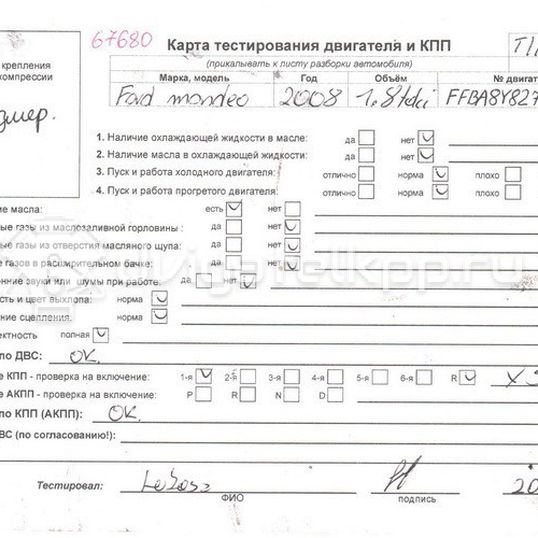 67680
Карта тестирования двигателя и КПП
(прикалывать к листу разборки автомобиля)
крепления
компрессии
Марка, модель Год Объём № двигат
Ford mondeo 2008 1.8tdci FFBA8Y827
1. Наличие охлаждающей жидкости в масле: да нет
2. Наличие масла в охлаждающей жидкости: да нет
3. Пуск и работа холодного двигателя: отлично норма плохо
4. Пуск и работа прогретого двигателя: отлично норма плохо
ие масла: есть нет
ые газы из маслозаливной горловины: да нет
ые газы из отверстия масляного щупа: да нет
е газов в расширительном бачке: да нет
нние звуки или шумы при работе: да нет
сть и цвет выхлопа: норма
ние сцепления: норма
ектность полная
по ДВС: OK.
е КПП - проверка на включение: 1-я 2-я 3-я 4-я 5-я 6-я R
е АКПП - проверка на включение: P R N D
по КПП (АКПП): OK.
ВС (по согласованию!):
Тестировал:
ФИО подпись
vigatelkpp.ru